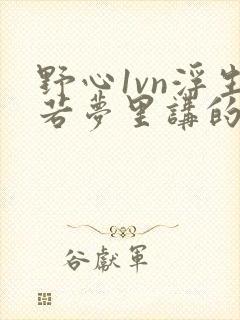 野心1vn浮生
若夢里講的
谷獻軍